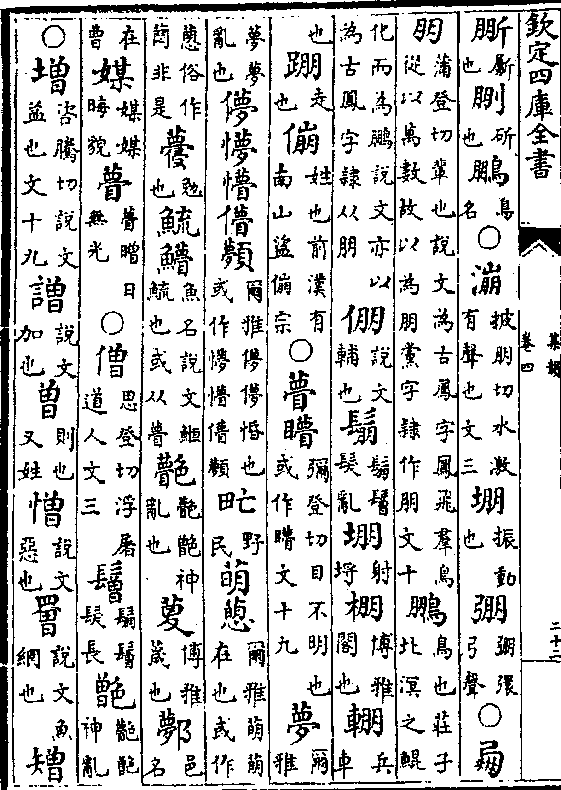 欽定四庫全書
集韻
卷四
二十二
斷也䣙斫也鵬鳥名○漰披朋切水激有聲也文三堋振動也弸弸彋弓聲○
朋蒲登切輩也說文為古鳳字鳳飛羣鳥從以萬數故以為朋黨字隸作朋文十鵬鳥也莊子北溟之鯤
化而為鵬說文亦以為古鳳字隸从朋倗說文輔也鬅鬅鬙髮亂堋射埒棚博雅閣也輣兵車
也䠬走也傰姓也前漢有南山盜傰宗○瞢矒彌登切目不明也或作矒文十九夢爾雅
夢夢亂也儚懜懵儚顭爾雅儚儚惽也或作懜懵儚顭甿野民萌蕄爾雅萌萌在也或作
蕄俗作非是勉也䱎鱛魚名說文䱎也或从瞢神亂也夣博雅也鄸邑名
在媒媒媒晦貌瞢瞢㬝日無光○僧思登切浮屠道人文三鬙鬅鬙髮長神亂
○增咨騰切說文益也文十九譄說文加也曾則也又姓憎說文惡也罾說文魚網也矰